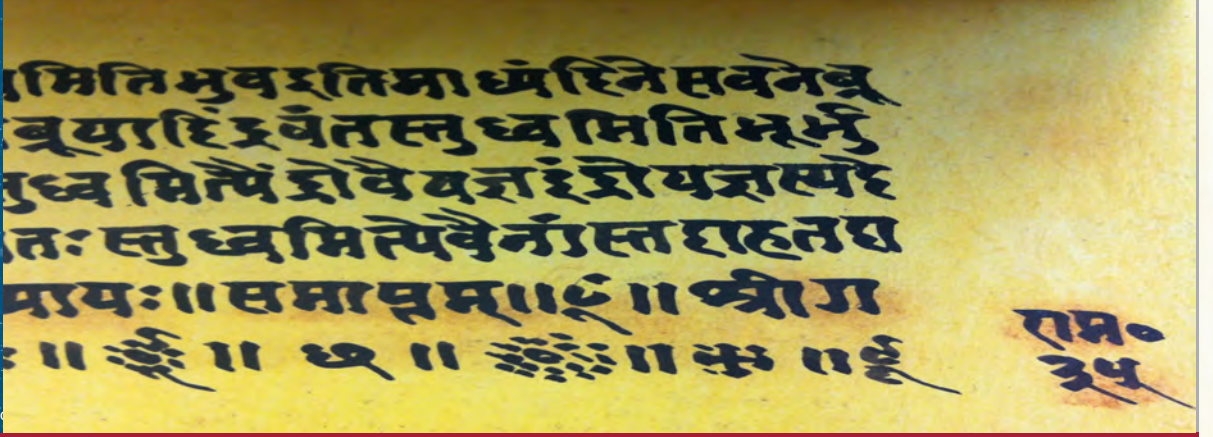 मिति भुव इति माध्यंदिने सवने ब्रू
ब्रूयादिंद्रवंत स्तुध्वमिति भूर्भु
तुध्वमित्यैंद्रो वै यज्ञ इंद्रो यज्ञस्य दे
तः स्तुध्वमित्येवैनांस्तदाह तदा
यः ॥ समाप्तम् ॥ ॥ श्रीरा
॥ ॥ छ ॥ ॥ ॥
राम०
३५